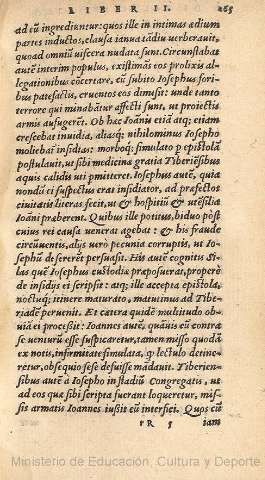 LIBER II. 265
ad eū ingrediẽtur: quos ille in intimas ædium
partes inductos, clausa ianua tādiu uerberauit,
quoad omniũ uiscera nudata sunt. Circũstabat
autē interim populus, existimās eos prolixis al-
legationibus cōcertare, cũ subito Iosephus fori-
bus patefactis, cruentos eos dimisit: unde tanto
terrore qui minabātur affecti sunt, ut proiectis
armis aufugerēt. Ob hæc Ioānni etiā atq; etiam
crescebat inuidia, aliasq; nihilominus Iosepho
moliebat insidias: morboq; simulato p epistolā
postulauit, ut sibi medicina gratia Tiberiēsibus
aquis calidis uti pmitteret. Iosephus autē, quia
nondũ ei suspectus eras insidiator, ad præfectos
ciuitatis literas fecit, ut & hospitiũ & utēsilia
Ioāni præberent. Quibus ille potitus, biduo pōst
cuius rei causa uenerat agebat: & his fraude
circũuentis, alijs uerò pecunia corruptis, ut Io-
sephũ desererēt persuasit. His autē cognitis Si-
las quē Iosephus custodiæ præposuerat, properè
de insidijs ei scripsit: atq; ille accepta epistola,
noctuq; itinere maturato, matutinus ad Tibe-
riadē peruenit. Et cætera quidē multitudo ob-
uiā ei processit: Ioannes autē, quāuis eũ contra
se uenturũ esse suspicaretur, tamen misso quodā
ex notis, infirmitate simulata, q lectulo detine-
retur, obsequio sese defuisse mādauit. Tiberien-
sibus autē à Iosepho in stadiũ Congregatis, ut
ad eos quæ sibi scripta fuerant loqueretur, mis-
sis armatis Ioannes iussit eũ interfici. Quos cũ
RR 5 iam
Ministerio de Educación, Cultura y Deporte